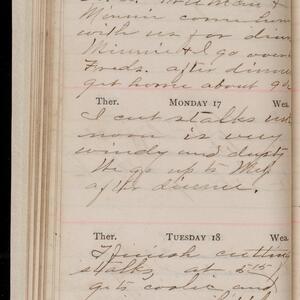 Minnie come hom
with us for din
Minnie & I go over
Freds. after dinne
get home about 9
Ther. MONDAY 17 Wea.
I cut stalks un
noon is very
windy and dusty
We go up to
after dinner.
Ther. TUESDAY 18 Wea.
I finish cutting
stalks at 5 15
gets cooler and